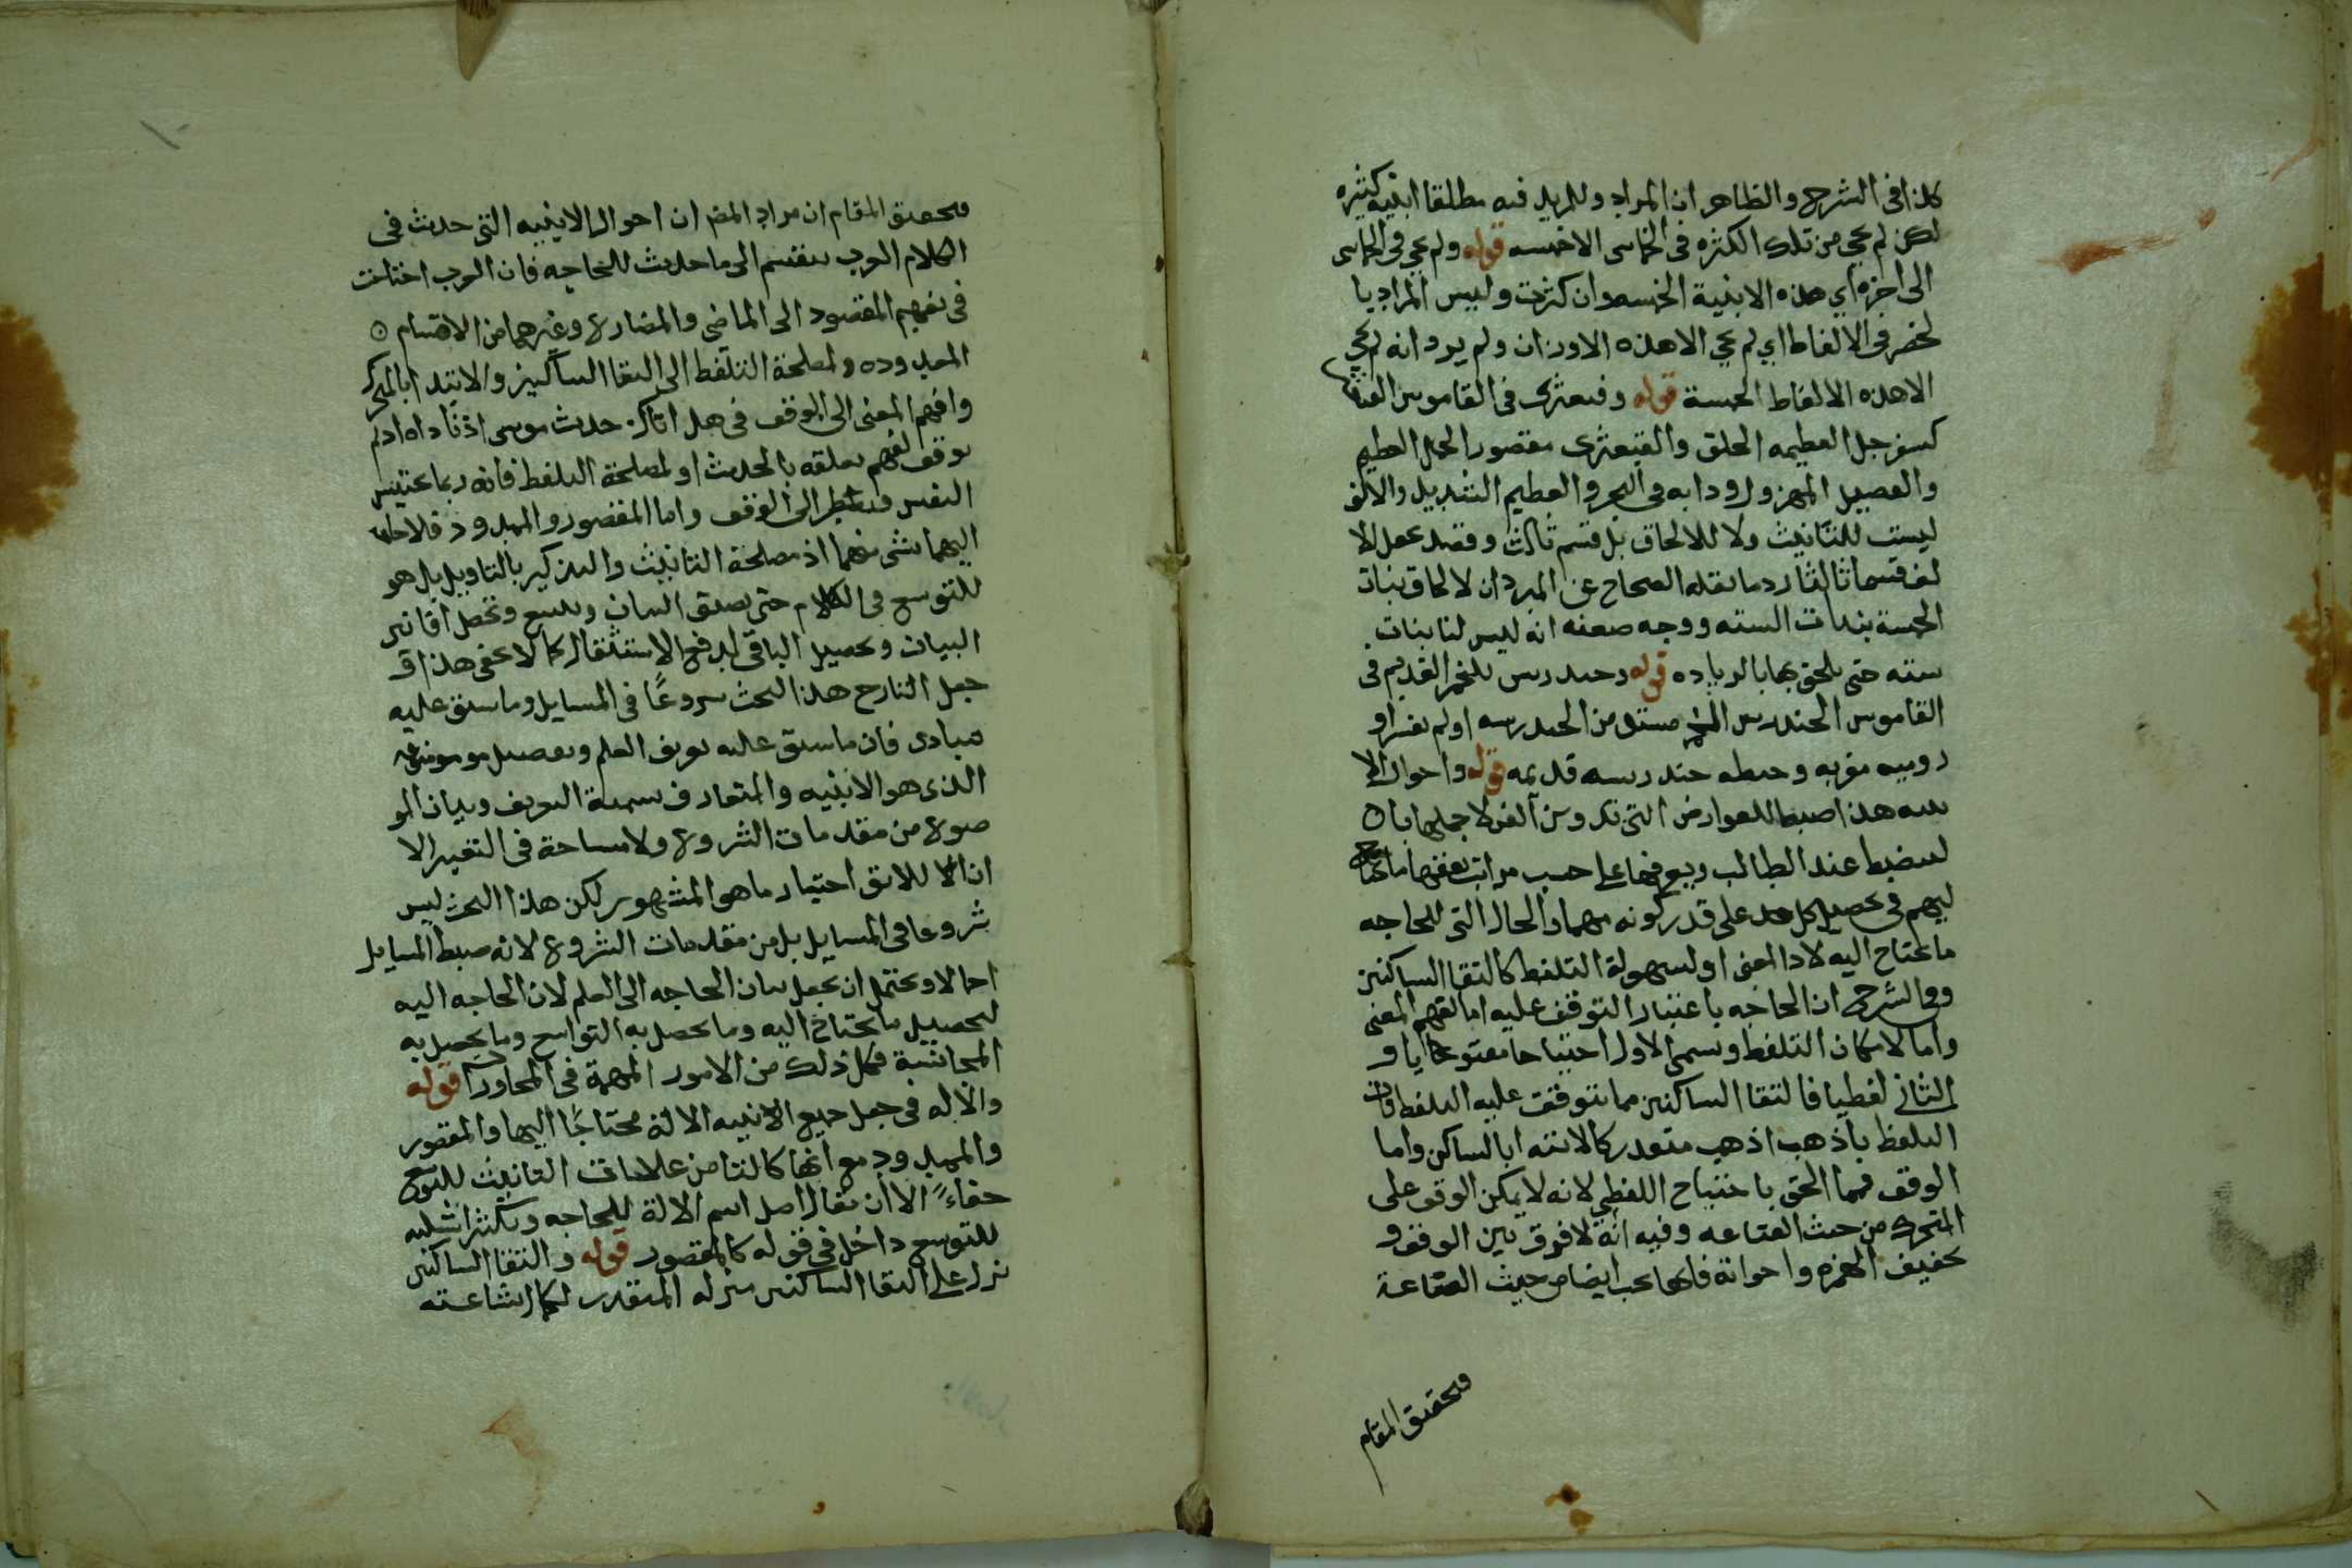 كذا فى الشرح والظاهر ان المراد وللمزيد فيه مطلقا ابنيه كثيره
لكن لم يجئ من تلك الكثره فى الخماسى الا خمسه قوله ولم يجئ فى الخماسى
الى اخره اي هذه الابنية الخمسه وان كثرت وليس المراد با
لحصر فى الالفاظ اي لم يجئ الا هذه الاوزان ولم يرد انه لم يجئ
الا هذه الالفاظ الخمسة قوله وقبعثرى فى القاموس
كسفرجل العظيمه الخلق والقبعثرى مقصور الجمل العظيم
والفصيل المهزول ودابه فى البحر والعظيم الشديد والالف
ليست للتانيث ولا للالحاق بل قسم ثالث وقصد بجعل الا
لف قسما ثالثا رد ما نقله الصحاح عن المبرد ان لالحاق بنات
الخمسة ببنات السته ووجه ضعفه انه ليس لنا بنات
سته حتى يلحق بها بالزياده قوله وخندريس للخمر القديم فى
القاموس الخندريس الخمر مشتق من الخدرسه او لم تفسر او
روميه معربه وحنطه خندريسه قديمه قوله واحوال الا
بنيه هذا ضبط للعوارض التى تدون الفن لاجلها بان
لينضبط عند الطالب ويبع فيها على حسب مراتب
ليهم فى تحصيل كل حد على قدر كونه مهما والحال التى للحاجه
ما يحتاج اليه لاداء المعنى او لسهولة التلفظ كالتقا الساكنين
وفى الشرح ان الحاجه باعتبار التوقف عليه اما لفهم المعنى
واما لامكان التلفظ ويسمى الاول احتياجا معنويا و
الثانى لفظيا فالتقا الساكنين مما يتوقف عليه التلفظ فان
التلفظ باذهب اذهب متعذر كالابتدا بالساكن واما
الوقف فيما الحق باحتياج اللفظي لانه لا يمكن الوقف على
المتحرك من حيث الصناعه وفيه انه لا فرق بين الوقف و
تخفيف الهمزه واخواته فانها يجب ايضا من حيث الصناعة
وتحقيق المقام
وتحقيق المقام ان مراد المص ان احوال الابنيه التى حدث فى
الكلام العرب ينقسم الى ما حدث للحاجه فان العرب احتاجت
فى تفهيم المقصود الى الماضى والمضارع وغيرهما من الاقسام
المعدوده ولمصلحة التلفظ الى التقا الساكنين والابتدا بالمتحرك
وافهم المعنى الى الوقف فى هل اتاك حديث موسى اذ ناداه اذ لم
توقف لفهم تعلقه بالحديث او لمصلحة التلفظ فانه ربما يحتبس
النفس فيضطر الى الوقف واما المقصور والممدود فلا حاجه
اليهما بشى منهما اذ مصلحة التانيث والتذكير بالتاويل بل هو
للتوسع فى الكلام حتى يصدق اللسان ويتسع وتحصل افانين
البيان وتحصيل الباقى لدفع الاستثقال كما لا يخفى هذا وقد
جعل الشارح هذا البحث شروعًا فى المسايل وما سبق عليه
مبادى فان ما سبق عليه تعريف العلم وتفصيل موضوعه
الذى هو الابنيه والمتعارف تسمية التعريف وبيان المو
ضوع من مقدمات الشروع ولا مساحة فى التعبير الا
ان الا للائق اختيار ما هو المشهور لكن هذا البحث ليس
شروعا فى المسايل بل من مقدمات الشروع لانه ضبط المسايل
اجمالا ويحتمل ان يجعل بيان الحاجه الى العلم لان الحاجه اليه
لتحصيل ما يحتاج اليه وما يحصل به التواسع وما يحصل به
المجانسة فكل ذلك من الامور المهمة فى المحاورات قوله
والاله فى جعل جميع الابنيه الالة محتاجًا اليها والمقصور
والممدود مع انها كالتا من علامات التانيث للتوسع
خفاءً الا ان يقال اصل اسم الالة للحاجه وتكثير ابنيته
للتوسع داخل فى قوله كالمقصور قوله والتقا الساكنين
نزل على التقا الساكنين منزله المتعذر لكمال شناعته